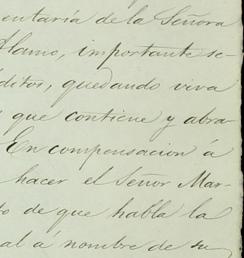 entaría de la Señora
Álamo, importante se-
ditos, quedando viva
que contiene y abra-
En compensacion á
hacer el Señor Mar-
to de que habla la
al á nombre de su